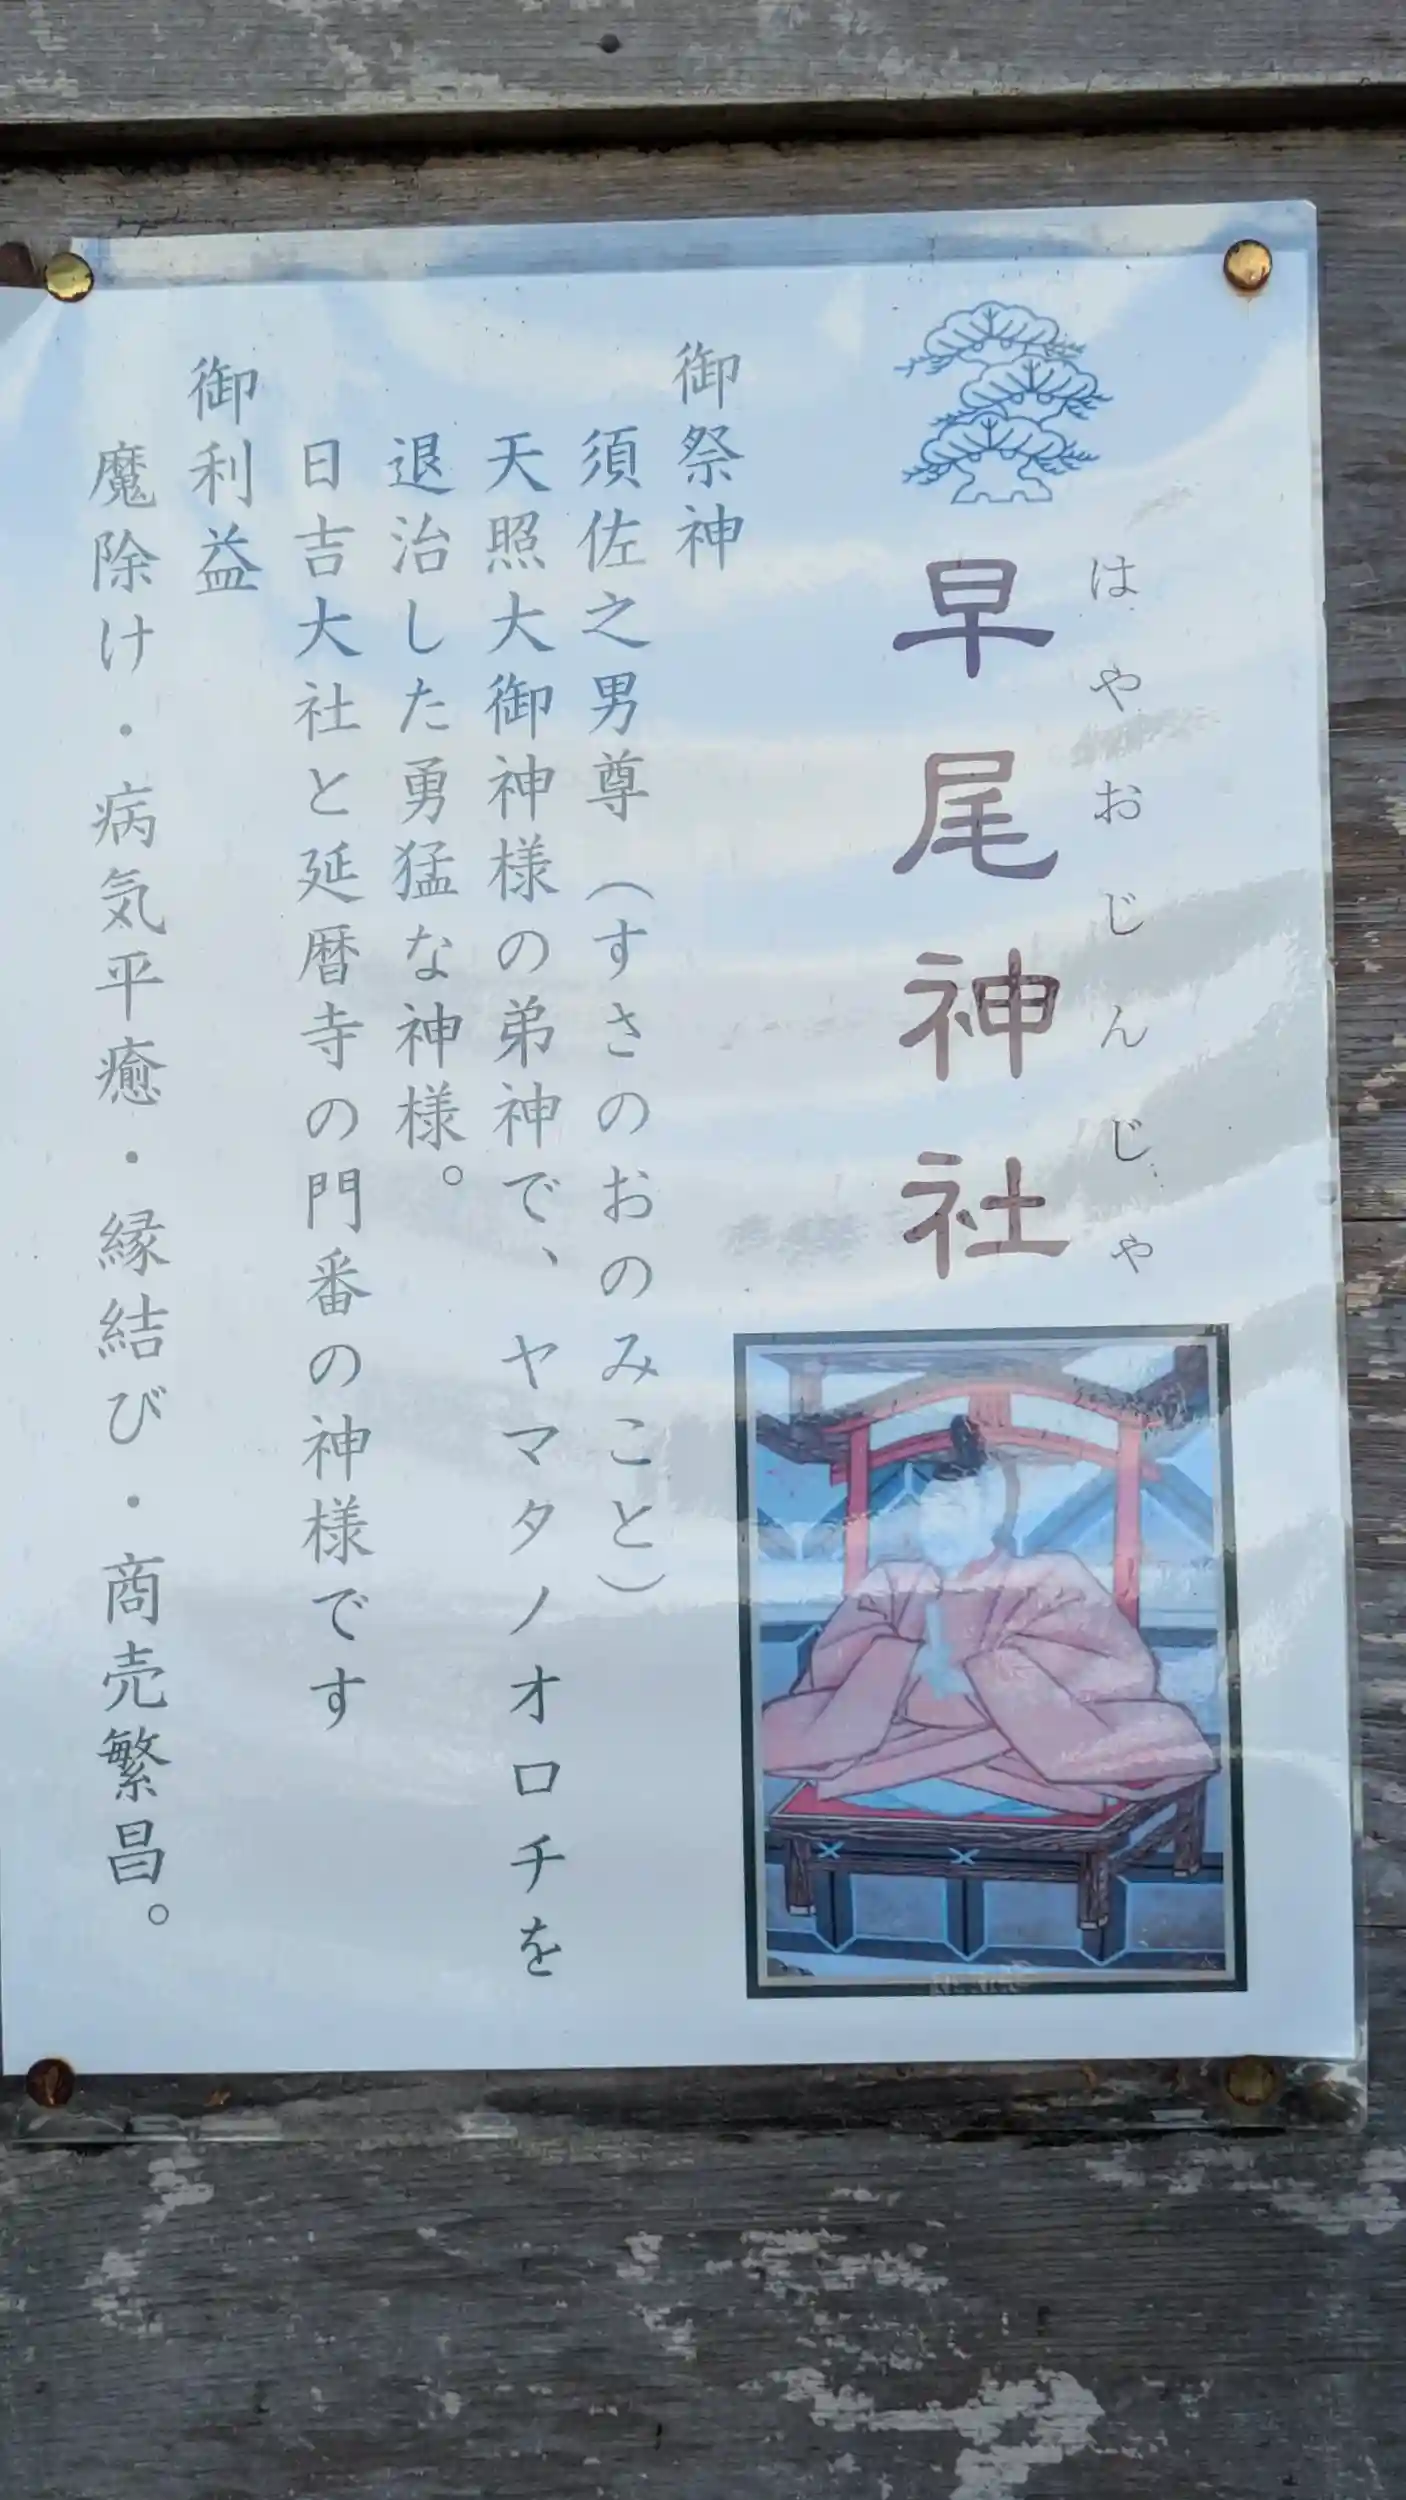 はやおじんじゃ
早尾神社
御祭神
須佐之男尊（すさのおのみこと）
天照大御神様の弟神で、ヤマタノオロチを
退治した勇猛な神様。
日吉大社と延暦寺の門番の神様です
御利益
魔除け・病気平癒・縁結び・商売繁昌。